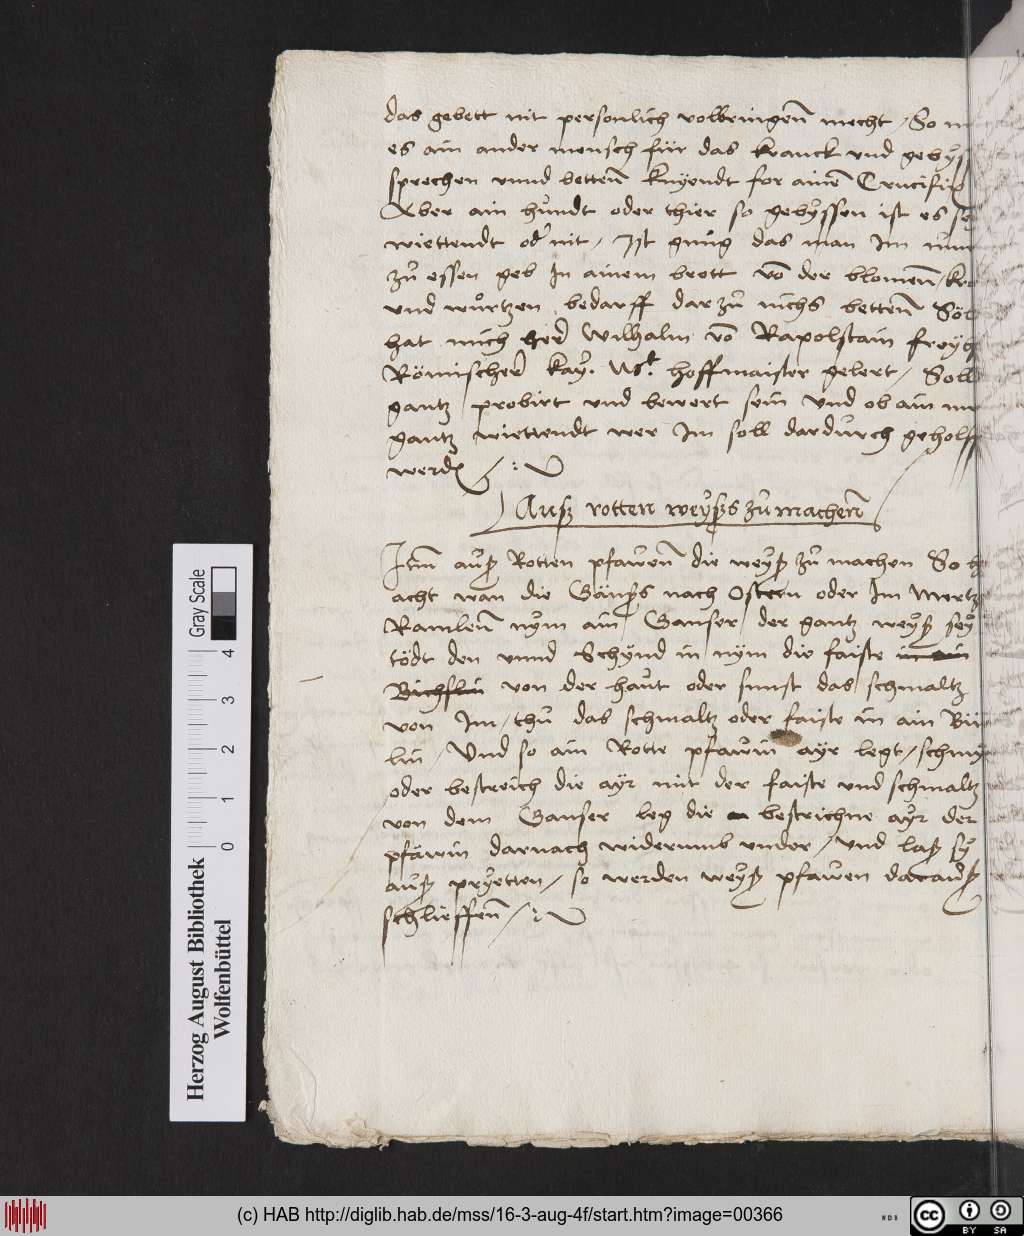 das gebett nit personlich volbringenn mecht / So m
es ain ander mensch für das kranck und gebyss
sprechen unnd bettenn knyendt for ainē Crucifix
Aber ain hundt oder thier so gebyssen ist es sey
wiettendt od nit / Ist gnug das man Im
zů essen geb In ainem brott vō der blomenn /
und würtzen bedarff darzů nichs bettenn Söl
hat mich her Wilhalm vō Rapolstain freyh
Römischer kay. Mt. hoffmaister gelert / Soll
gantz probirt und bewert sein Und ob ain
gantz wiettendt wer Im soll dardurch geholff
werdē
Ausz rotten weyss zůmachenn
Itm ausz Rotten pfawenn die weysz zů machen So
acht wan die Gänss nach Ostern oder Im Mertz
Ramlenn nym ain Ganser der gantz weysz sey
tödt den unnd Schynd in nym die faiste in ain
Bichslin von der haut oder sunst das schmaltz
von Im / thů das schmaltz oder faiste in ain Bü
lin / Und so ain Rotte pfawin ayr legt / schmyr
oder bestreich die ayr mit der faiste und schmaltz
von dem Ganser leg die bestrichne ayr der
pfawin darnach widerumb under / und lasz sy
ausz pryetten / so werden weysz pfawen darausz
schlieffenn /
Herzog August Bibliothek
Wolfenbüttel
0 1 2 3 4
Gray Scale
(c) HAB http://diglib.hab.de/mss/16-3-aug-4f/start.htm?image=00366
WDB
cc
BY SA